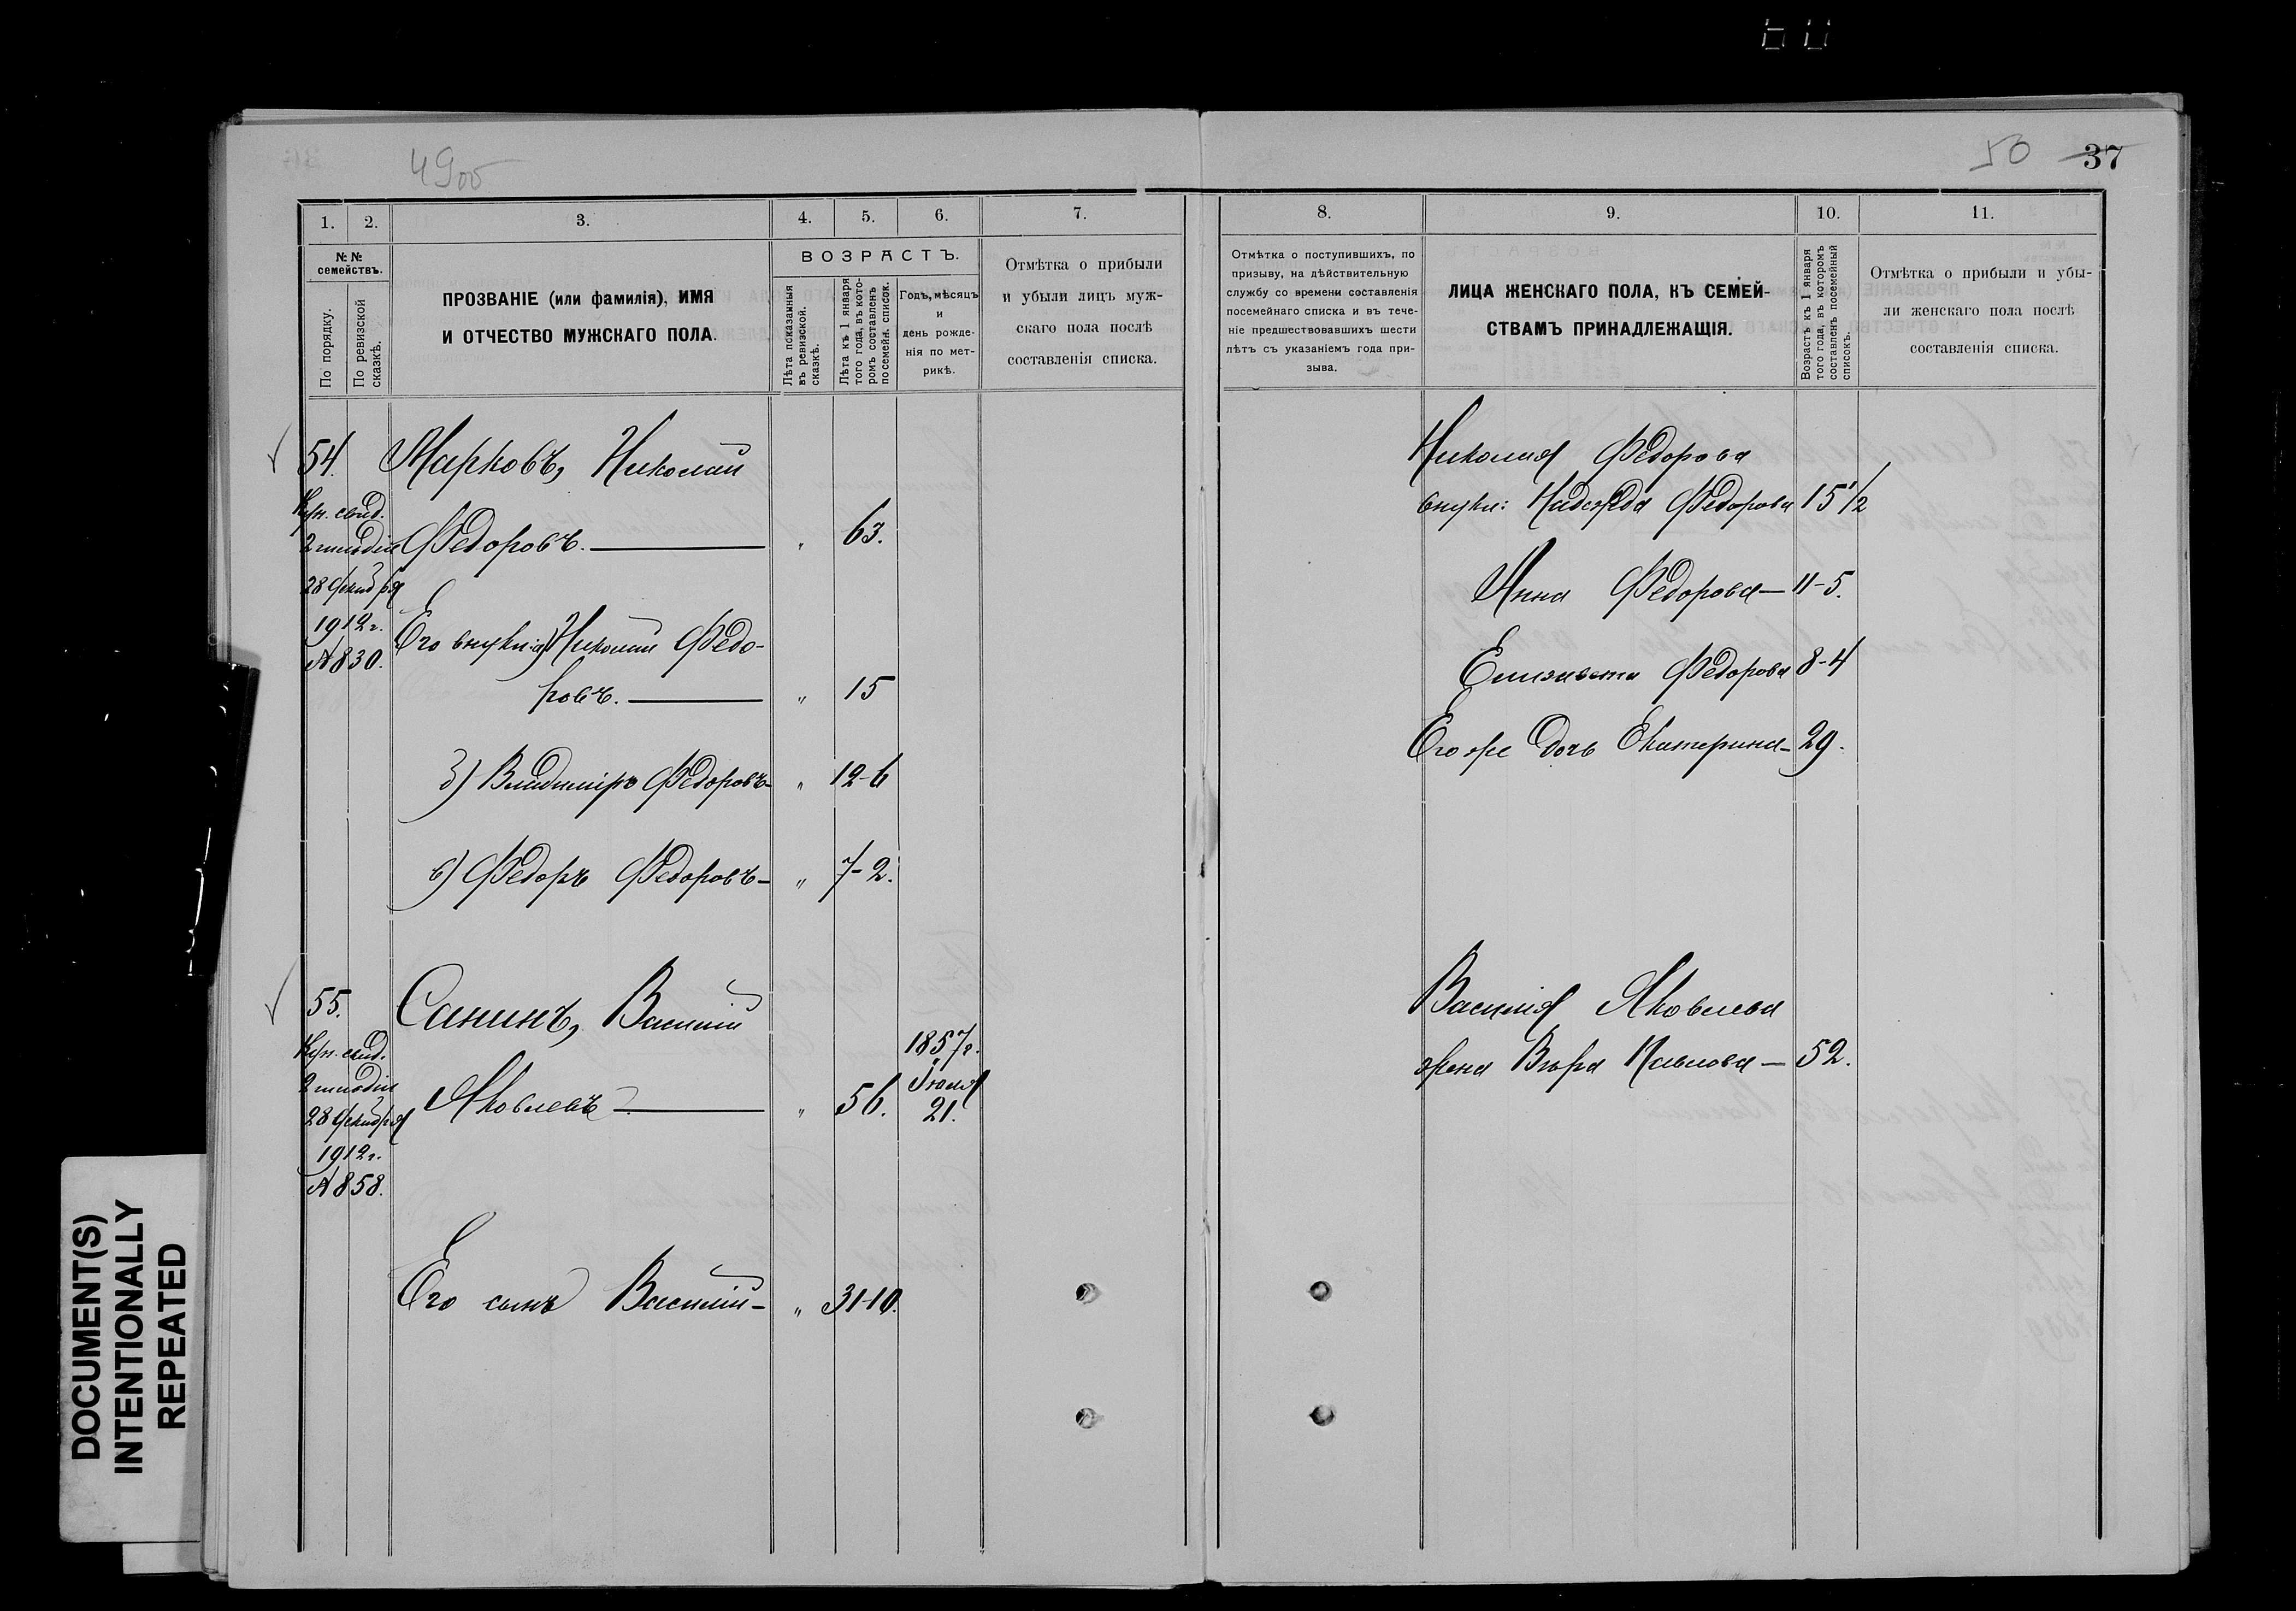 49об
50 37
1. 2. 3. 4. 5. 6. 7.
№ №
семействъ.
По порядку.
По ревизской
сказкѣ.
ПРОЗВАНІЕ (или фамилія), ИМЯ
И ОТЧЕСТВО МУЖСКАГО ПОЛА.
ВОЗРАСТЪ.
Лѣта показанныя
въ ревизской.
сказкѣ.
Лѣта къ 1 января
того года, въ кото-
ромъ составленъ
посемейн. список.
Годъ, мѣсяцъ
и
день рожде-
нія по мет-
рикѣ.
Отмѣтка о прибыли
и убыли лицъ муж-
скаго пола послѣ
составленія списка.
54. Марковъ, Николай
Куп. свид.
2 гильдіи Федоровъ. — „ 63.
28 Декабря
1912 г.
№ 830.
Его внуки: а) Николай Федо-
ровъ. — „ 15
б) Владиміръ Федоровъ- „ 12-6
в) Федоръ Федоровъ- „ 7-2.
55. Санинъ, Василій
Куп. свид.
2 гильдіи
28 Декабря
1912 г.
№ 858.
Яковлевъ — „ 56.
1857 г.
Іюля
21.
Его сынъ Василій- „ 31-10.
8. 9. 10. 11.
Отмѣтка о поступившихъ, по
призыву, на дѣйствительную
службу со времени составленія
посемейнаго списка и въ тече-
ніе предшествовавшихъ шести
лѣтъ съ указаніемъ года при-
зыва.
ЛИЦА ЖЕНСКАГО ПОЛА, КЪ СЕМЕЙ-
СТВАМЪ ПРИНАДЛЕЖАЩІЯ.
Возрастъ къ 1 января
того года, въ которомъ
составленъ посемейный
списокъ.
Отмѣтка о прибыли и убы-
ли женскаго пола послѣ
составленія списка.
Николая Федорова
внуки: Надежда Федорова 15 1/2
Анна Федорова — 11-5.
Елизавета Федорова 8-4
Его же дочь Екатерина- 29.
Василія Яковлева
жена Вѣра Павлова — 52.
DOCUMENT(S)
INTENTIONALLY
REPEATED